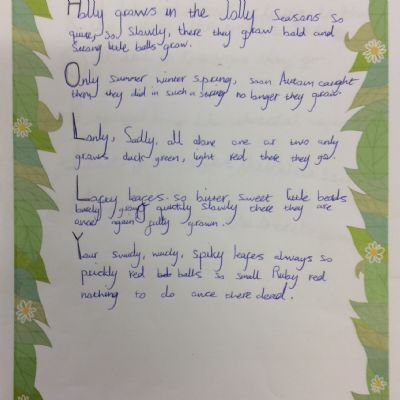 Holly grows in the Jolly Seasons so
quite, so Slowly, there they grow bold and
Strong little balls grow.
Only summer winter spring, soon Autom caught
them they did in such a no longer they grow.
Lonly, Sadly, all alone one or two only
grows dark green, light red there they go.
Lacey leafes so bitter sweet little beads
barely grows quietly slowly there they are
once again fully grown.
Your swirly, wirly, spiky leafes always so
prickly red balls so small Ruby red
nothing to do once there dead.